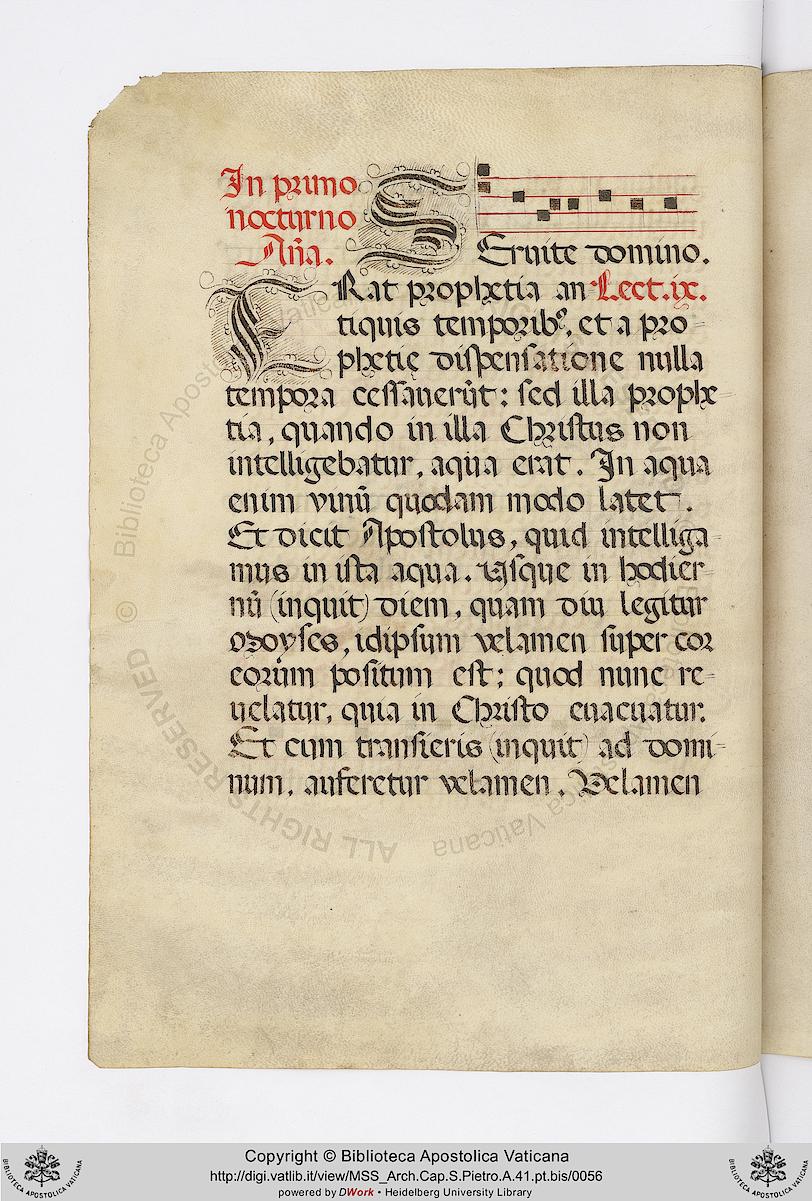 In primo
nocturno
Aña.
Seruite domino.
ERat prophetia an Lect. ix.
tiquis temporibꝰ, et a pro-
phetię dispensatione nulla
tempora cessauerũt: sed illa prophe-
tia, quando in illa Christus non
intelligebatur, aqua erat. In aqua
enim vinũ quodam modo latet.
Et dicit Apostolus, quid intelliga-
mus in ista aqua. Vsque in hodier-
nũ (inquit) diem, quam diu legitur
Moyses, idipsum velamen super cor
eorum positum est: quod nunc re-
uelatur, quia in Christo euacuatur.
Et cum transieris (inquit) ad domi-
num, auferetur velamen. Velamen
Biblioteca Apostolica Vaticana
© Biblioteca Apostolica Vaticana
ALL RIGHTS RESERVED
Copyright © Biblioteca Apostolica Vaticana
http://digi.vatlib.it/view/MSS_Arch.Cap.S.Pietro.A.41.pt.bis/0056
powered by DWork • Heidelberg University Library